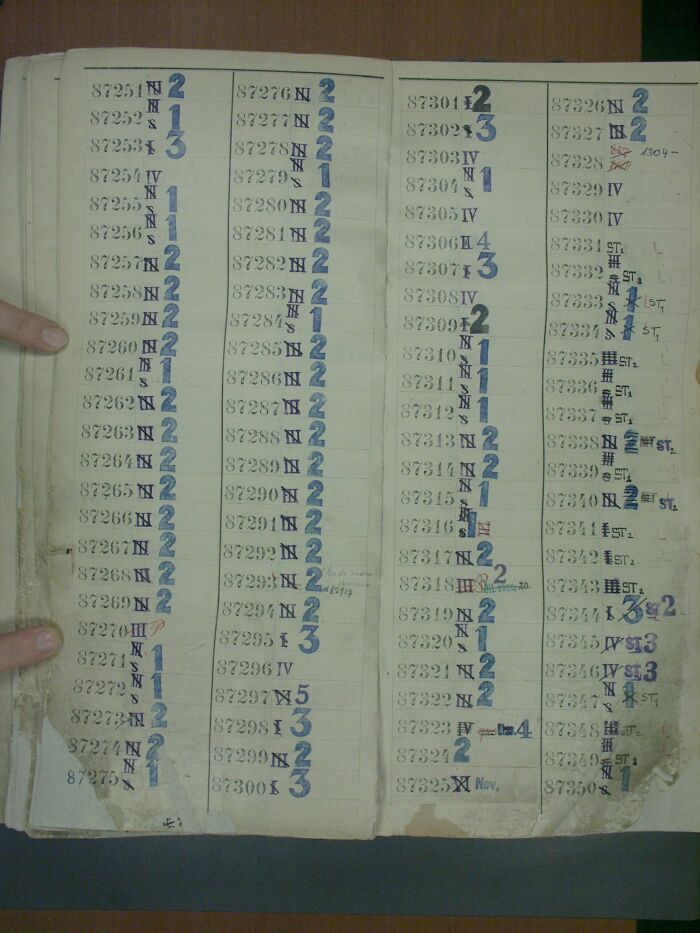 87251 N 2
87252 N S 1
87253 I 3
87254 IV
87255 N S 1
87256 N S 1
87257 N 2
87258 N 2
87259 N 2
87260 N 2
87261 N S 1
87262 N 2
87263 N 2
87264 N 2
87265 N 2
87266 N 2
87267 N 2
87268 N 2
87269 N 2
87270 III P
87271 N S 1
87272 N S 1
87273 2
87274 N 2
87275 N S 1
87276 N 2
87277 N 2
87278 N 2
87279 N S 1
87280 N 2
87281 N 2
87282 N 2
87283 N 2
87284 N S 1
87285 N 2
87286 N 2
87287 N 2
87288 N 2
87289 N 2
87290 N 2
87291 N 2
87292 N 2
87293 N 2
87294 N 2
87295 I 3
87296 IV
87297 5
87298 I 3
87299 N 2
87300 I 3
87301 I 2
87302 I 3
87303 IV
87304 N S 1
87305 IV
87306 II 4
87307 I 3
87308 IV
87309 I 2
87310 N S 1
87311 N S 1
87312 N S 1
87313 N 2
87314 N 2
87315 N S 1
87316 S 1 III
87317 N 2
87318 III P 2 20.
87319 N 2
87320 N S 1
87321 N 2
87322 N 2
87323 IV Dez. 4
87324 2
87325 XI Nov.
87326 N 2
87327 N 2
87328 1304-
87329 IV
87330 IV
87331 ST1 L
87332 III S ST2
87333 N S 1 L ST1
87334 N S 1 ST1
87335 III ST2
87336 III S ST1
87337 III S ST1
87338 N 2 III ST2
87339 III S ST1
87340 N 2 III ST2
87341 I ST2
87342 I ST2
87343 III ST2
87344 I 3 St 2
87345 IV ST. 3
87346 IV ST. 3
87347 N S 1 ST1
87348 III ST2
87349 III S ST1
87350 N S 1